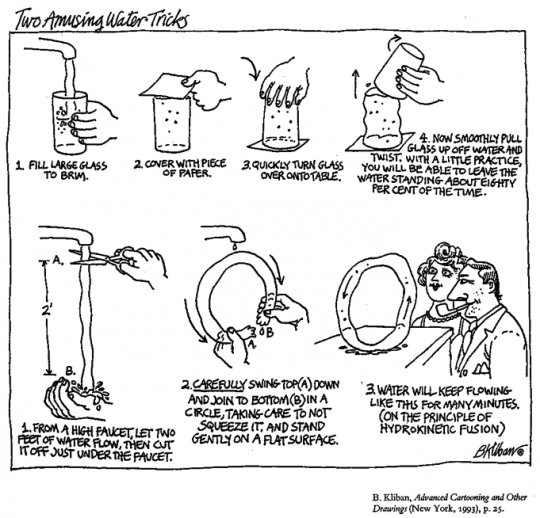 Two Amusing Water Tricks
1. FILL LARGE GLASS
TO BRIM.
2. COVER WITH PIECE
OF PAPER.
3. QUICKLY TURN GLASS
OVER ONTO TABLE.
4. NOW SMOOTHLY PULL
GLASS UP OFF WATER AND
TWIST. WITH A LITTLE PRACTICE,
YOU WILL BE ABLE TO LEAVE THE
WATER STANDING ABOUT EIGHTY
PER CENT OF THE TIME.
A.
2'
B.
1. FROM A HIGH FAUCET, LET TWO
FEET OF WATER FLOW, THEN CUT
IT OFF JUST UNDER THE FAUCET.
B
A
2. CAREFULLY SWING TOP(A) DOWN
AND JOIN TO BOTTOM(B) IN A
CIRCLE, TAKING CARE TO NOT
SQUEEZE IT, AND STAND
GENTLY ON A FLAT SURFACE.
3. WATER WILL KEEP FLOWING
LIKE THIS FOR MANY MINUTES.
(ON THE PRINCIPLE OF
HYDROKINETIC FUSION)
BKliban©
B. Kliban, Advanced Cartooning and Other
Drawings (New York, 1993), p. 25.